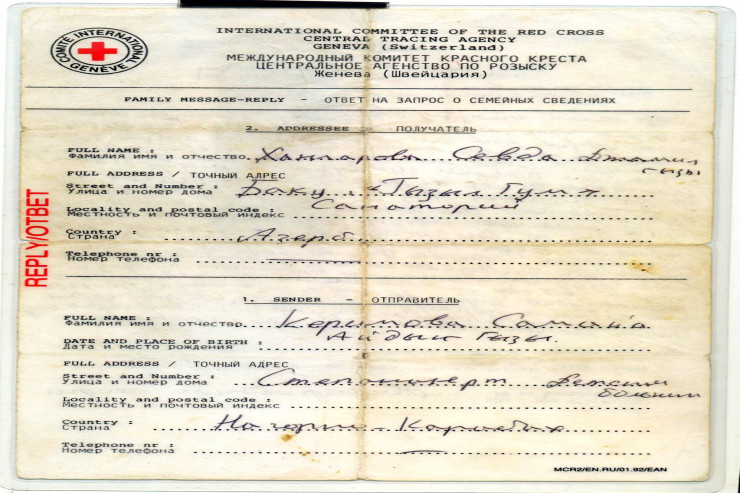 COMITÉ INTERNATIONAL GENÈVE
INTERNATIONAL COMMITTEE OF THE RED CROSS
CENTRAL TRACING AGENCY
GENEVA (Switzerland)
МЕЖДУНАРОДНЫЙ КОМИТЕТ КРАСНОГО КРЕСТА
ЦЕНТРАЛЬНОЕ АГЕНСТВО ПО РОЗЫСКУ
Женева (Швейцария)
FAMILY MESSAGE-REPLY - ОТВЕТ НА ЗАПРОС О СЕМЕЙНЫХ СВЕДЕНИЯХ
2. ADDRESSEE - ПОЛУЧАТЕЛЬ
FULL NAME :
Фамилия имя и отчество Ханларова Севда Джамил
гызы
FULL ADDRESS / ТОЧНЫЙ АДРЕС
Street and Number :
Улица и номер дома Баку
Locality and postal code : Санаторий
Местность и почтовый индекс
Country :
Страна Азерб.
Telephone nr :
Номер телефона
REPLY/ОТВЕТ
1. SENDER - ОТПРАВИТЕЛЬ
FULL NAME :
Фамилия имя и отчество Керимова
DATE AND PLACE OF BIRTH : Айдын гызы.
Дата и место рождения
FULL ADDRESS / ТОЧНЫЙ АДРЕС
Street and Number :
Улица и номер дома Степанакерт
Locality and postal code :
Местность и почтовый индекс
Country :
Страна Нагорно-Карабах
Telephone nr :
Номер телефона
MCR2/EN.RU/01.92/EAN